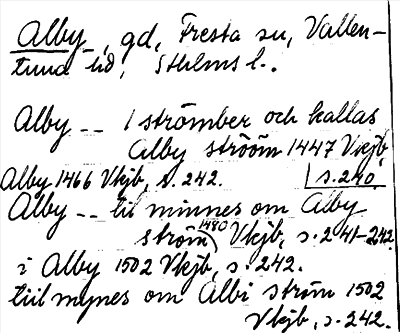 Alby, gd, Fresta sn, Vallen-
tuna hd, Sthlms l..
Alby -- I strömber och kallas
Alby strööm 1447 Vkjb,
s. 240.
Alby 1466 Vkjb, s. 242.
Alby -- til minnes om Alby
ström 1480 Vkjb, s. 241-242.
i Alby 1502 Vkjb, s. 242.
tiil mynes om Albi ström 1502
Vkjb, s. 242.